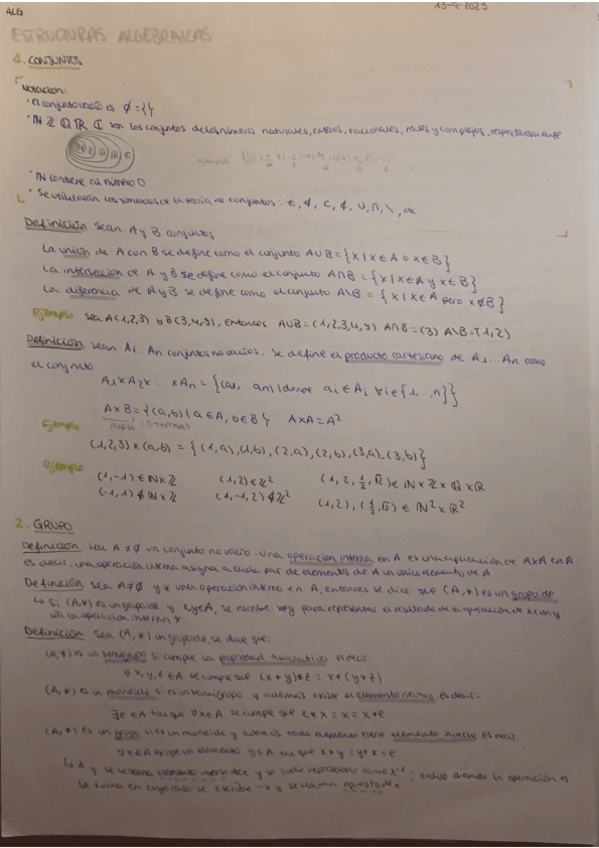 ALG
13-9-2023
ESTRUCTURAS ALGEBRAICAS
1. CONJUNTOS
Notación:
· El conjunto vacío es ∅={}
· ℕ ℤ ℚ ℝ ℂ son los conjuntos de los números naturales, enteros, racionales, reales y complejos, respectivamente
ℕ ℤ ℚ ℝ ℂ
· ℕ contiene al número 0
· Se utilizarán los símbolos de la teoría de conjuntos: ∈, ∉, ⊂, ⊄, ∪, ∩, \, etc
Definición Sean A y B conjuntos
La unión de A con B se define como el conjunto A∪B = {x | x∈A o x∈B}
La intersección de A y B se define como el conjunto A∩B = {x | x∈A y x∈B}
La diferencia de A y B se define como el conjunto A\B = {x | x∈A pero x∉B}
Ejemplo Sea A(1,2,3) y B(3,4,5), Entonces A∪B = (1,2,3,4,5) A∩B = (3) A\B = (1,2)
Definición Sean A1... An conjuntos no vacíos. Se define el producto cartesiano de A1... An como
el conjunto
A1×A2×... ×An = {(a1, ... an) | donde ai ∈ Ai ∀i∈{1, ..., n}}
A×B = {(a,b) | a∈A, b∈B} A×A = A²
Ejemplo
(1,2,3) × (a,b) = {(1,a), (1,b), (2,a), (2,b), (3,a), (3,b)}
Ejemplo
(1,-1) ∈ ℕ×ℤ (1,2) ∈ ℤ² (1, 2, 1/2, √2) ∈ ℕ×ℤ×ℚ×ℝ
(-1,1) ∉ ℕ×ℤ (1,-1,2) ∉ ℤ² (1,2), (1/2, √2) ∈ ℕ²×ℝ²
2. GRUPO
Definición Sea A≠∅ un conjunto no vacío. Una operación interna en A es una aplicación de A×A en A
es decir, una operación interna asigna a cada par de elementos de A un único elemento de A
Definición Sea A≠∅ y * una operación interna en A, entonces se dice que (A,*) es un grupoide
↳ Si (A,*) es un grupoide y x,y∈A, se escribe x*y para representar el resultado de la operación de x con y
vía la operación interna *.
Definición Sea (A,*) un grupoide, se dice que:
(A,*) es un semigrupo si cumple la propiedad asociativa es decir:
∀x,y,z ∈A se cumple que (x*y)*z = x*(y*z)
(A,*) es un monoide si es un semigrupo y además existe el elemento neutro es decir:
∃e∈A tal que ∀x∈A se cumple que e*x = x = x*e
(A,*) es un grupo si es un monoide y además todo elemento tiene elemento inverso es decir:
∀x∈A existe un elemento y∈A tal que x*y = y*x = e
↳ A y se le llama elemento inverso de x y se suele representar como x⁻¹; salvo cuando la operación es
la suma en cuyo caso se escribe -x y se llama opuesto de x